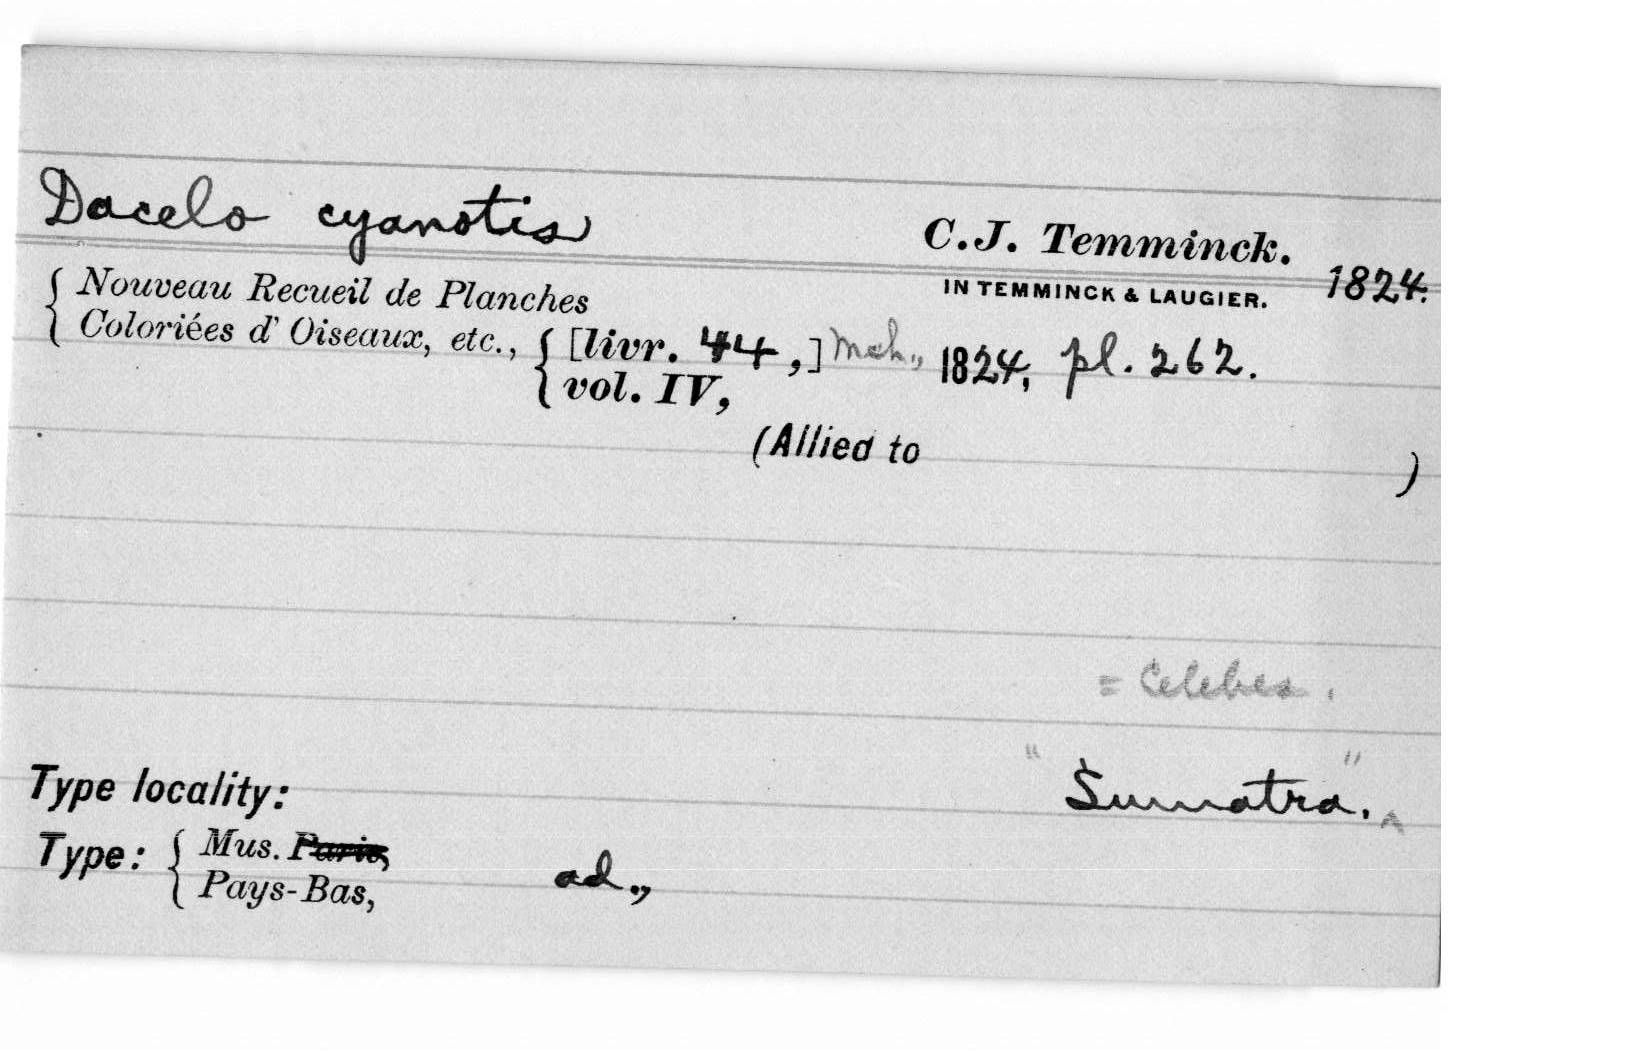 Dacelo cyanotis
C.J. Temminck.
IN TEMMINCK & LAUGIER. 1824.
{ Nouveau Recueil de Planches
Coloriées d' Oiseaux, etc., { [livr. 44,] Mch., 1824, pl. 262.
vol. IV,
(Allied to )
= Celebes.
Type locality: "Sumatra."
Type: { Mus. Paris,
Pays-Bas, ad.,